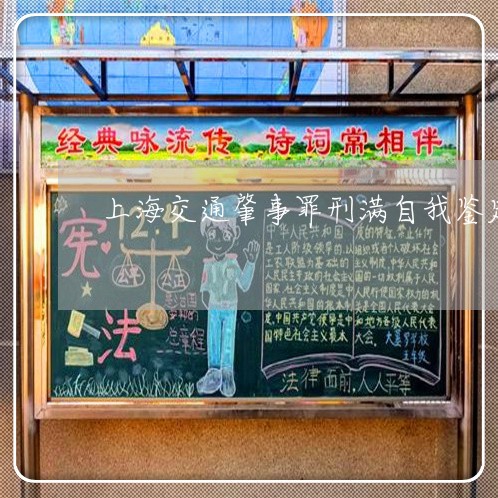 经典咏流传 诗词常相伴
上海交通肇事罪刑满自我鉴定
12.4
宪
法
公平
公正
总章程
中华人民共和国
是工人阶级领导的,以
工农联盟为基础的
人民民主专政的社会主义
国家,社会主义制度是中
华人民共和国的根本制
度,中国共产党领导是中
国特色社会主义最本
质的特征,禁止任何
组织或者个人破坏社会
主义制度,中华人民共和
国的一切权利属于人民
人民行使国家权力的机
关是全国人民代表大会
和地方各级人民代表
大会.
五年级
法律面前,人人平等